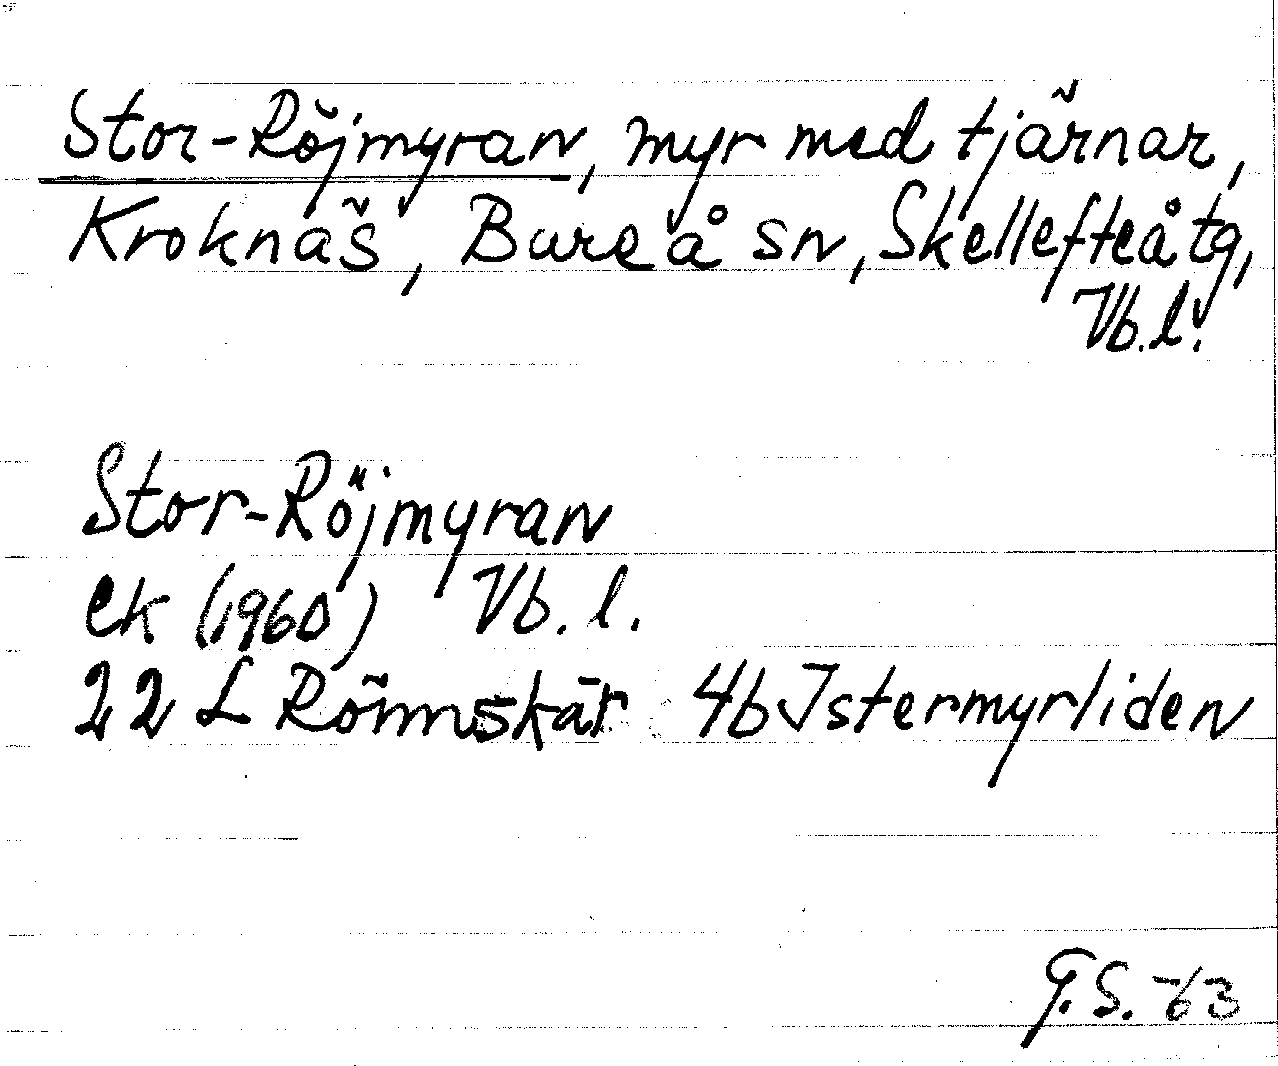 Stor-Röjmyran, myr med tjärnar,
Kroknäs, Bureå sn, Skellefteå tg,
Vb.l.
Stor-Röjmyran
ek (1960) Vb. l.
22 L Rönnskär 4b Istermyrliden
G.S.-63